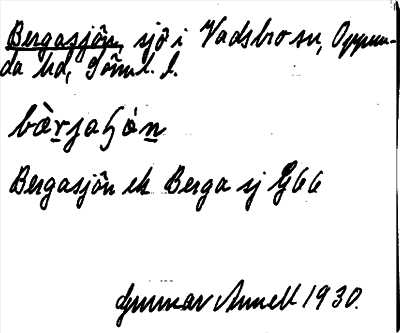 Bergasjön, sjö i Vadsbro sn, Oppun-
da hd, Söml. l.
bàr̲jaʃớn̲
Bergasjön ek Berga sj G66
Gunnar Annell 1930.